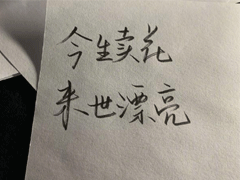 今生卖花
来世漂亮